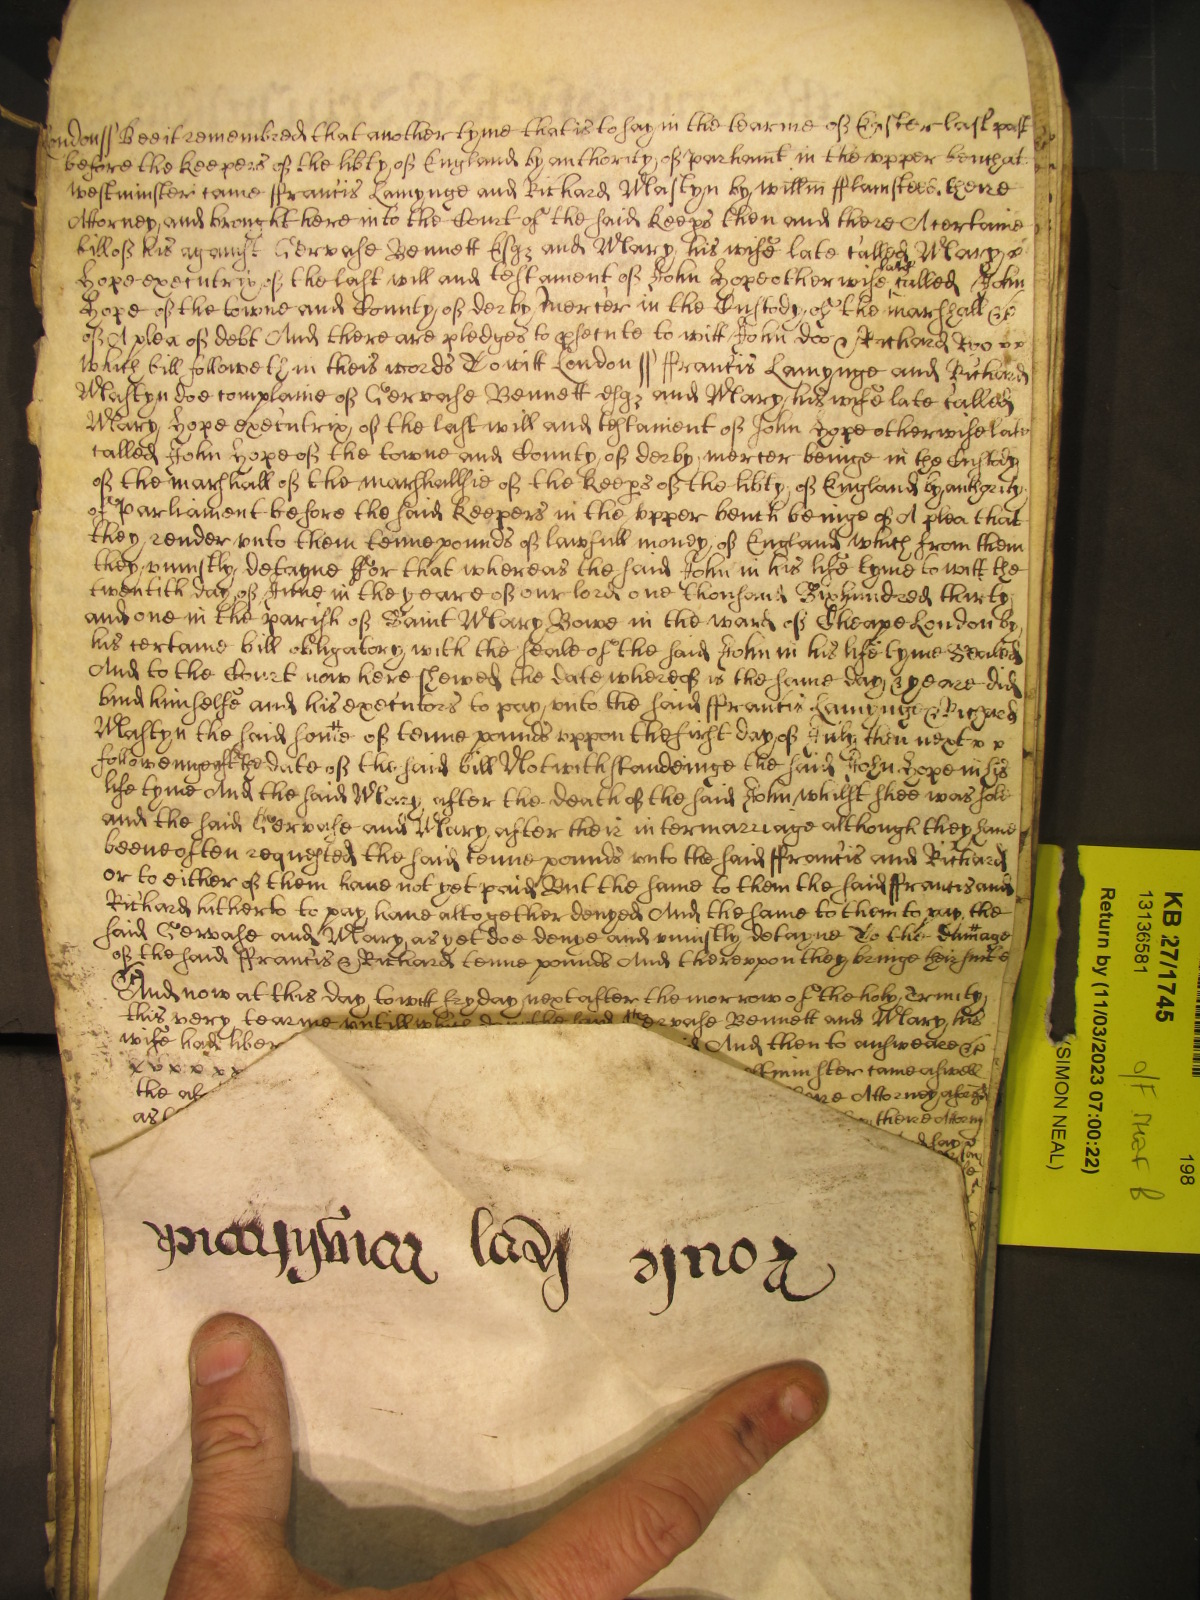 London ss Bee it remembred that another tyme that is to say in the tearme of Easter last past
before the keepers of the libty of England by authority of parliamt in the vpper bench at
westminster came ffrancis Lamynge and Richard Mastyn by willm fflamsteed there
Attorney and brought here into the Court of the said keeps then and there A certaine
bill of his against Gervase Bennett Esqr and Mary his wife late called Mary x
Hope executrix of the last will and testament of John Hope otherwise late called John
Hope of the towne and County of derby mercer in the Custody of the marshall &c
of A plea of debt And there are pledges to psecute to witt John doo & Richard Roo x x
which bill followeth in theis words To witt London ss ffrancis Lamynge and Richard
Mastyn doe complaine of Gervase Bennett esqr and Mary his wife late called
Mary Hope executrix of the last will and testament of John Hope otherwise late
called John Hope of the towne and County of derby mercer beinge in the Custody
of the marshall of the marshallsie of the keeps of the libty of England by authority
of Parliament before the said keepers in the vpper bench beinge of A plea that
they render vnto them tenne pounds of lawfull money of England which from them
they vniustly detayne ffor that whereas the said John in his life tyme to witt the
twentith day of June in the yeare of our lord one thousand Sixhundred thirty
and one in the parish of Saint Mary Bowe in the ward of Cheape London by
his certaine bill obligatory with the seale of the said John in his life tyme Sealed
And to the Court now here shewed the date whereof is the same day & yeare did
bind himselfe and his executors to pay vnto the said ffrancis Lamynge & Richard
Mastyn the said some of tenne pounds vppon the first day of July then next x x
followeinge after the date of the said bill Notwithstandeinge the said John Hope in his
life tyme And the said Mary after the death of the said John whilst shee was sole
and the said Gervase and Mary after their intermarriage although they haue
beene often requested the said tenne pounds vnto the said ffrancis and Richard
or to either of them haue not yet paid But the same to them the said ffrancis and
Richard hitherto to pay haue altogether denyed And the same to them to pay the
said Gervase and Mary as yet doe denye and vniustly detayne To the damage
of the said ffrancis & Richard tenne pounds And therevpon they bringe their suite
And now at this day to witt fryday next after the morrow of the holy Trinity
this very tearme vntill which day the said Gervase Bennett and Mary his
wife had liber And then to answeare &c
x x x x x x minster came aswell
the ab Attorney aforesd
as there Attorny
Roule
KB 27/1745
13136581
Return by (11/03/2023 07:00:22)
(SIMON NEAL)
198